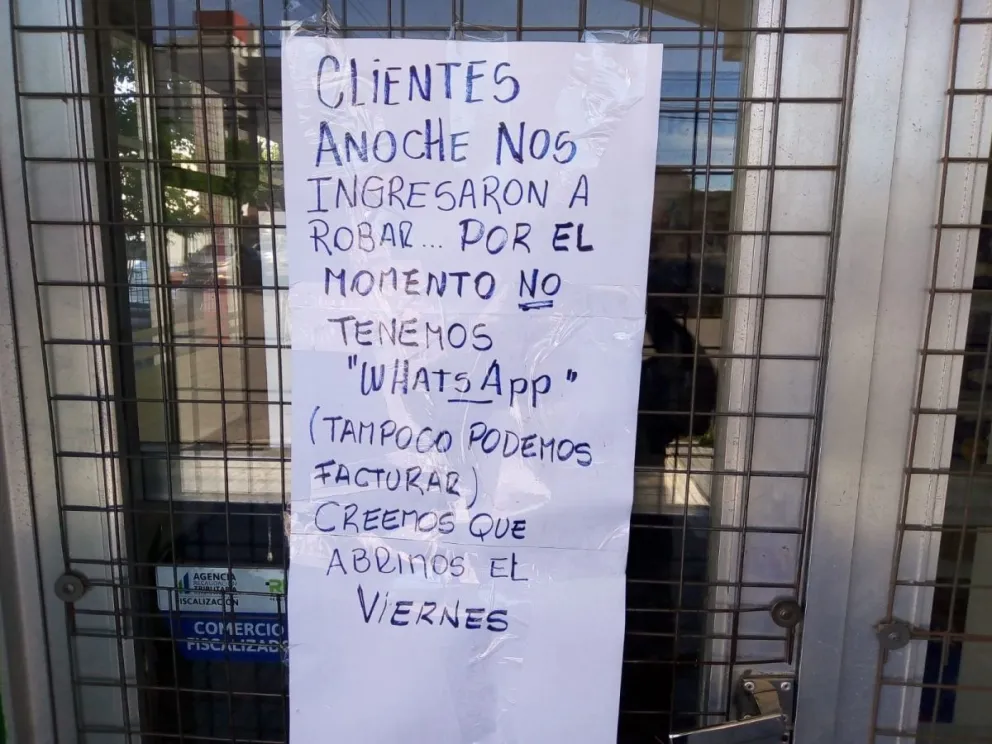 CLIENTES
ANOCHE NOS
INGRESARON A
ROBAR... POR EL
MOMENTO NO
TENEMOS
"WHATSApp"
(TAMPOCO PODEMOS
FACTURAR)
CREEMOS QUE
ABRIMOS EL
VIERNES
AGENCIA
RECAUDACIÓN
TRIBUTARIA
FISCALIZACIÓN
COMERCIO
FISCALIZADO